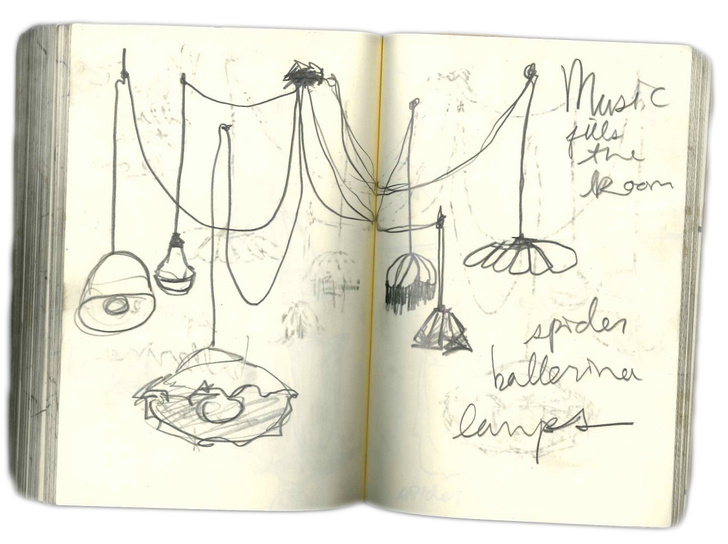 Music
fills
the
Room
spider
ballerina
lamps